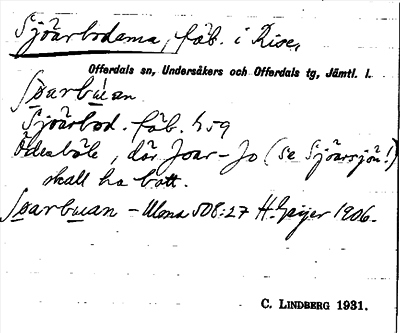 Sjöarbodarna, fäb. i Rise,
Offerdals sn, Undersåkers och Offerdals tg, Jämtl. l.
Sjöarbod. fäb. 459
Ödesböle, där Joar-Jo (se Sjöarsjön!)
skall ha bott.
508:27 H. Geijer 1906.
C. LINDBERG 1931.